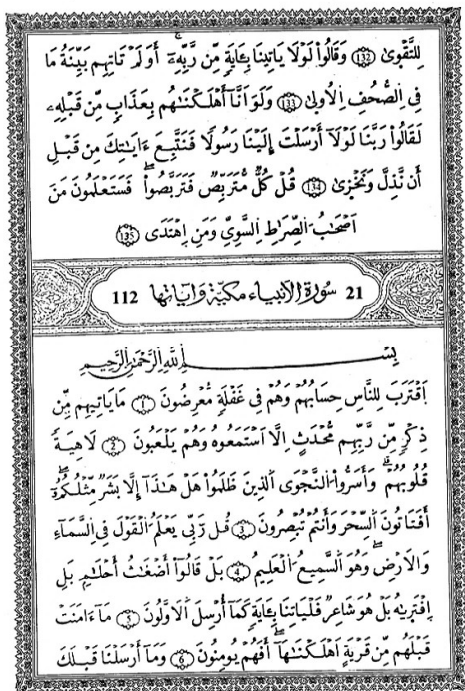 لِلتَّقْوٜىٰ 132 وَقَالُواْ لَوْلَا يَاتِينَا بِـَٔايَةٍ مِّن رَّبِّهِۦٓ أَوَلَمْ تَاتِهِم بَيِّنَةُ مَا
فِى اِ۬لصُّحُفِ اِ۬لُاولٜىٰ 133 وَلَوَ اَنَّآ أَهْلَكْنَٰهُم بِعَذَابٍ مِّن قَبْلِهِۦ
لَقَالُواْ رَبَّنَا لَوْلَآ أَرْسَلْتَ إِلَيْنَا رَسُولًا فَنَتَّبِعَ ءَايَٰتِكَ مِن قَبْلِ
أَن نَّذِلَّ وَنَخْزٜىٰ 134 قُلْ كُلٌّ مُّتَرَبِّصٌ فَتَرَبَّصُواْۖ فَسَتَعْلَمُونَ مَنَ
اَصْحَٰبُ اُ۬لصِّرَٰطِ اِ۬لسَّوِىِّ وَمَنِ اِ۪هْتَدٜىٰ 135
21 سُورَةُ الْأَنْبِيَاءِ مَكِّيَّةٌ وَآيَاتُهَا 112
بِسْمِ اِ۬للَّهِ اِ۬لرَّحْمَٰنِ اِ۬لرَّحِيمِ
اَ۪قْتَرَبَ لِلنَّاسِ حِسَابُهُمْ وَهُمْ فِى غَفْلَةٍ مُّعْرِضُونَ 1 مَا يَاتِيهِم مِّن
ذِكْرٍ مِّن رَّبِّهِم مُّحْدَثٍ اِلَّا اَ۪سْتَمَعُوهُ وَهُمْ يَلْعَبُونَ 2 لَاهِيَةً
قُلُوبُهُمْۖ وَأَسَرُّواْ اُ۬لنَّجْوَى اَ۬لذِينَ ظَلَمُواْ هَلْ هَٰذَآ إِلَّا بَشَرٌ مِّثْلُكُمُۥٓۖ
أَفَتَاتُونَ اَ۬لسِّحْرَ وَأَنتُمْ تُبْصِرُونَ 3 قُل رَّبِّى يَعْلَمُ اُ۬لْقَوْلَ فِى اِ۬لسَّمَآءِ
وَالَارْضِۖ وَهُوَ اَ۬لسَّمِيعُ اُ۬لْعَلِيمُ 4 بَلْ قَالُوٓاْ أَضْغَٰثُ أَحْلَٰمِۢ بَلِ
اِ۪فْتَر۪ىٰهُ بَلْ هُوَ شَاعِرٌ فَلْيَاتِنَا بِـَٔايَةٍ كَمَآ أُرْسِلَ اَ۬لَاوَّلُونَ 5 مَآ ءَامَنَتْ
قَبْلَهُم مِّن قَرْيَةٍ اَهْلَكْنَٰهَآۖ أَفَهُمْ يُومِنُونَ 6 وَمَآ أَرْسَلْنَا قَبْلَكَ